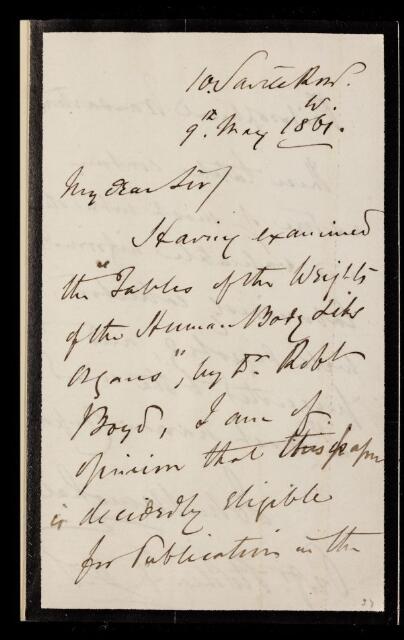 10. Savile Row.
W.
9th. May 1861.
My dear Sir/
Having examined
the "Tables of the Weights
of the Human Body & its
Organs", by Dr. Robt
Boyd, I am of
opinion that this paper
is decidedly eligible
for Publication in the